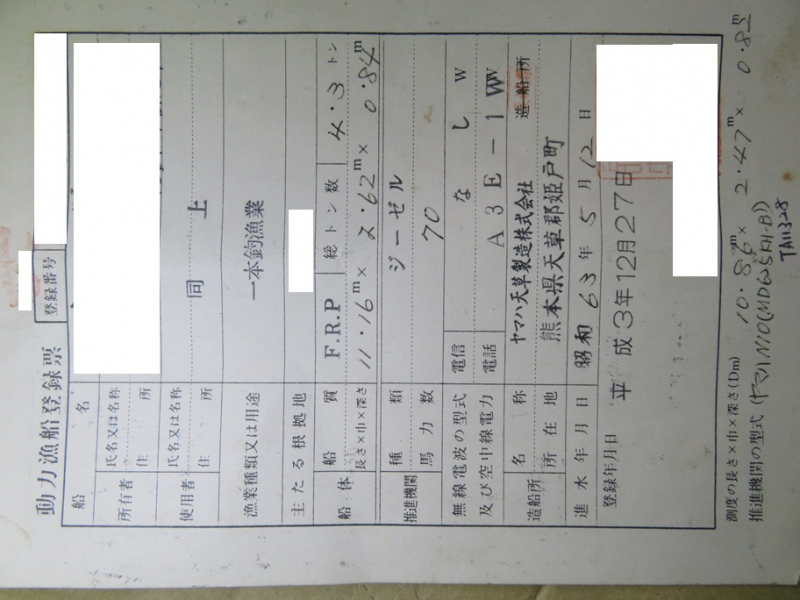 動力漁船登録票 登録番号
船名
所有者 氏名又は名称
住所
使用者 氏名又は名称 同上
住所
漁業種類又は用途 一本釣漁業
主たる根拠地
船体 船質 F.R.P 総トン数 4.3 トン
長さ×巾×深さ 11.16m× 2.62m× 0.84m
推進機関 種類 ジーゼル
馬力数 70
無線電波の型式 電信 なし W
及び空中線電力 電話 A3E-1W
造船所 名称 ヤマハ天草製造株式会社 造船所
所在地 熊本県天草郡姫戸町
進水年月日 昭和63年5月12日
登録年月日 平成3年12月27日
測度の長さ×巾×深さ(Dm) 10.86m× 2.47m× 0.8m
推進機関の型式 (ヤマハN10(MD625KH-B))
TA11328